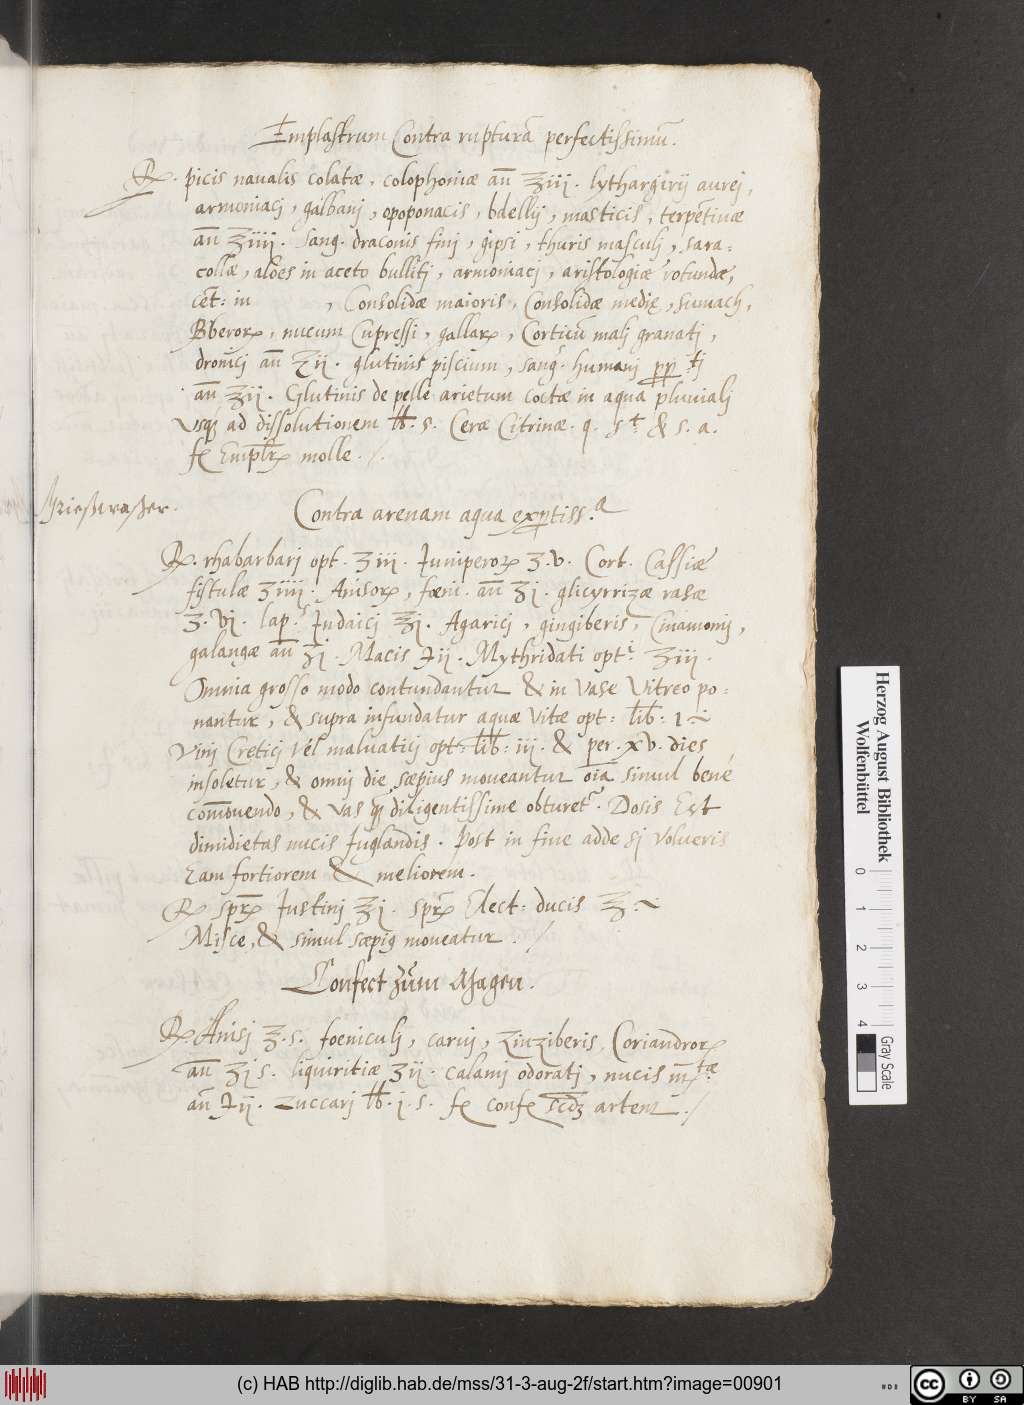 Emplastrum Contra rupturā perfectissimū.
℞. picis naualis colatæ, colophoniæ añ ℥iij. lythargirij aurej,
armoniacj, galbanj, opoponacis, bdellij, masticis, terpētinæ
añ ℥iiij. sang. draconis finj, gipsi, thuris masculj, sara:
collæ, aloës in aceto bullitj, armoniacj, aristologiæ rotundæ,
cēt: in , Consolidæ maioris, Consolidæ medię, sumach,
nucum Cupressi, gallarꝝ, Corticū malj granatj,
añ ʒij. glutinis piscium, sang. humanj
añ ℥ij. Glutinis de pelle arietum coctæ in aqua pluuialj
vsqꝫ ad dissolutionem lb. s. Ceræ Citrinæ. q. s. & s. a.
molle.
Grießwaßer.
Contra arenam aqua
℞. rhabarbarj opt. ℥iij. Juniperoꝝ ℥.v. Cort. Cassiæ
fistulæ ℥iiij. Anisorꝝ, fœni. añ ℥j. glicyrrizæ rasæ
℥.vj. lap. Judaicj ℥j. Agaricj, gingiberis, Cinamomj,
galangæ añ ℥j. Macis ʒij. Mythridati opt. ℥iij.
Omnia grosso modo contundantur & in Vase Vitreo po:
nantur, & supra infundatur aquæ Vitæ opt: lib: 1
Vinj Creticj vel maluaticj opt: lib: iij. & per. xv. dies
insoletur, & omnj die sæpius moueantur oīa simul bené
com̄ouendo, & vas diligentissime obturet. Dosis Est
dimidietas nucis Juglandis. Post in fine adde sj volueris
Eam fortiorem & meliorem.
℞ Justinj ℥j. Elect: ducis ℥.
Misce, & simul sæpiꝰ moueatur
Confect zūm Magen.
℞ Anisj ℥.s. fœniculj, caruj, Zinziberis, Coriandrorꝝ
añ ℥j s. liquiritiæ ℥ij. calamj odoratj, nucis
añ ʒij. zuccarj lb. j. s. artem.
Herzog August Bibliothek
Wolfenbüttel
0 1 2 3 4
Gray Scale
(c) HAB http://diglib.hab.de/mss/31-3-aug-2f/start.htm?image=00901
cc BY SA